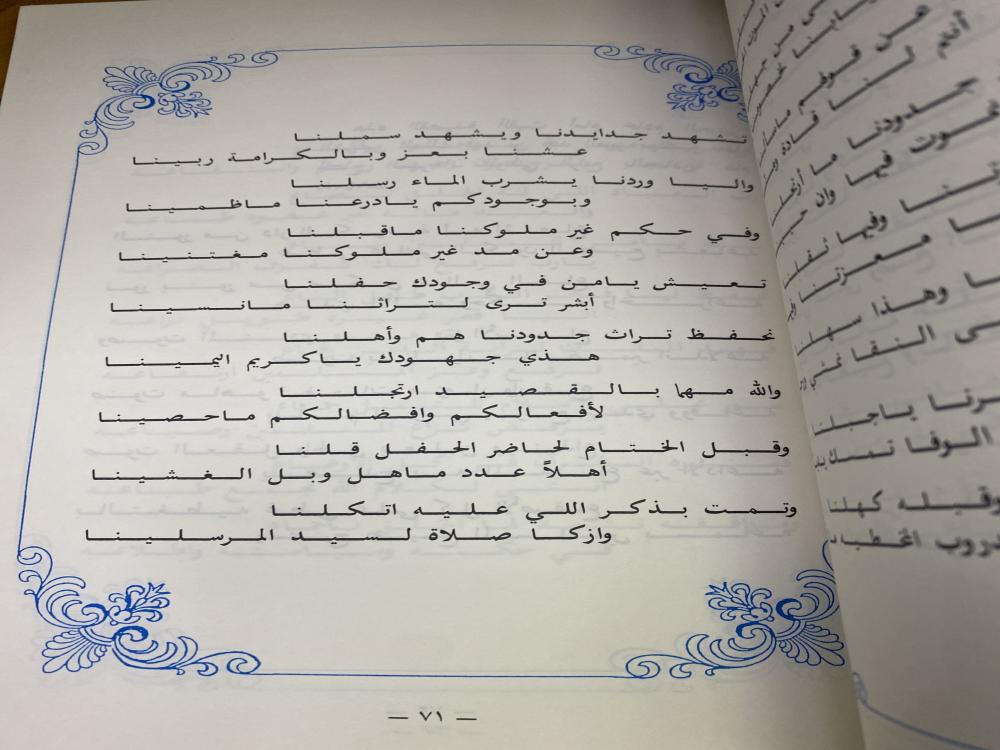 تشهد جدايدنا ويشهد سملنا
عشنا بعز وبالكرامة ربينا
واليا وردنا يشرب الماء رسلنا
وبوجودكم يادرعنا ماظمينا
وفي حكم غير ملوكنا ماقبلنا
وعن مد غير ملوكنا مغتنينا
تعيش يامن في وجودك حفلنا
أبشر ترى لتراثنا مانسينا
نحفظ تراث جدودنا هم وأهلنا
هذي جهودك ياكريم اليمينا
والله مهما بالقصيد ارتجلنا
لأفعالكم وافضالكم ماحصينا
وقبل الختام لحاضر الحفل قلنا
أهلاً عدد ماهل وبل الغشينا
وتمت بذكر اللي عليه اتكلنا
وازكا صلاة لسيد المرسلينا
— ٧١ —
أنتم
هن فوقهم
لنا قادة
جدودنا ما
نموت فيها وان
وفيها
وهذا سهلنا
النقا نمشي
ياجبلنا
الوفا نمسك
وقبله كهلنا
دروب